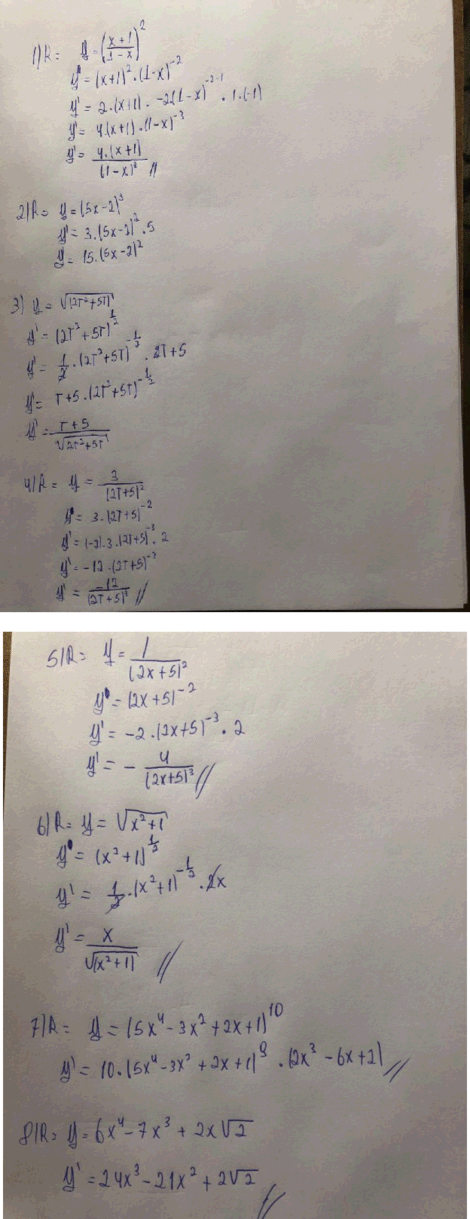 1) R = y = (x+1/1-x)^2
y = (x+1)^2 . (1-x)^-2
y' = 2.(x+1) . -2(1-x)^-2-1 . 1.(-1)
y' = 4.(x+1) . (1-x)^-3
y' = 4.(x+1)/(1-x)^3 //
2) R = y = (5x-2)^3
y' = 3.(5x-2)^2 . 5
y = 15.(5x-2)^2
3) y = √(2T^2+5T)
y' = (2T^2+5T)^1/2
y' = 1/2 . (2T^2+5T)^-1/2 . 2T+5
y' = T+5 . (2T^2+5T)^-1/2
y' = T+5/√2T^2+5T
4) R = y = 3/(2T+5)^2
y = 3 . (2T+5)^-2
y' = (-2) . 3 . (2T+5)^-3 . 2
y' = -12 . (2T+5)^-3
y' = -12/(2T+5)^3 //
5) R = y = 1/(2x+5)^2
y = (2x+5)^-2
y' = -2 . (2x+5)^-3 . 2
y' = - 4/(2x+5)^3 //
6) R = y = √x^2+1
y = (x^2+1)^1/2
y' = 1/2 . (x^2+1)^-1/2 . 2x
y' = x/√(x^2+1) //
7) R = y = (5x^4-3x^2+2x+1)^10
y' = 10.(5x^4-3x^2+2x+1)^9 . (2x^3-6x+2) //
8) R = y = 6x^4-7x^3+2x√2
y' = 24x^3-21x^2+2√2 //